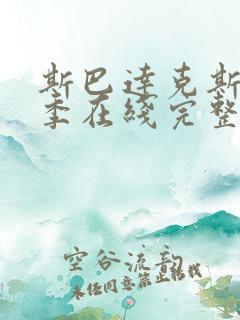 斯巴达克斯
季在线完整
空谷流韵
未经同意禁止转载